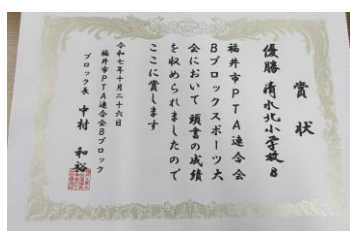 賞状
優勝 清水北小学校B
福井市PTA連合会
Bブロックスポーツ大
会において頭書の成績
を収められましたので
ここに賞します
令和七年十月二十六日
福井市PTA連合会Bブロック
ブロック長 中村 和裕